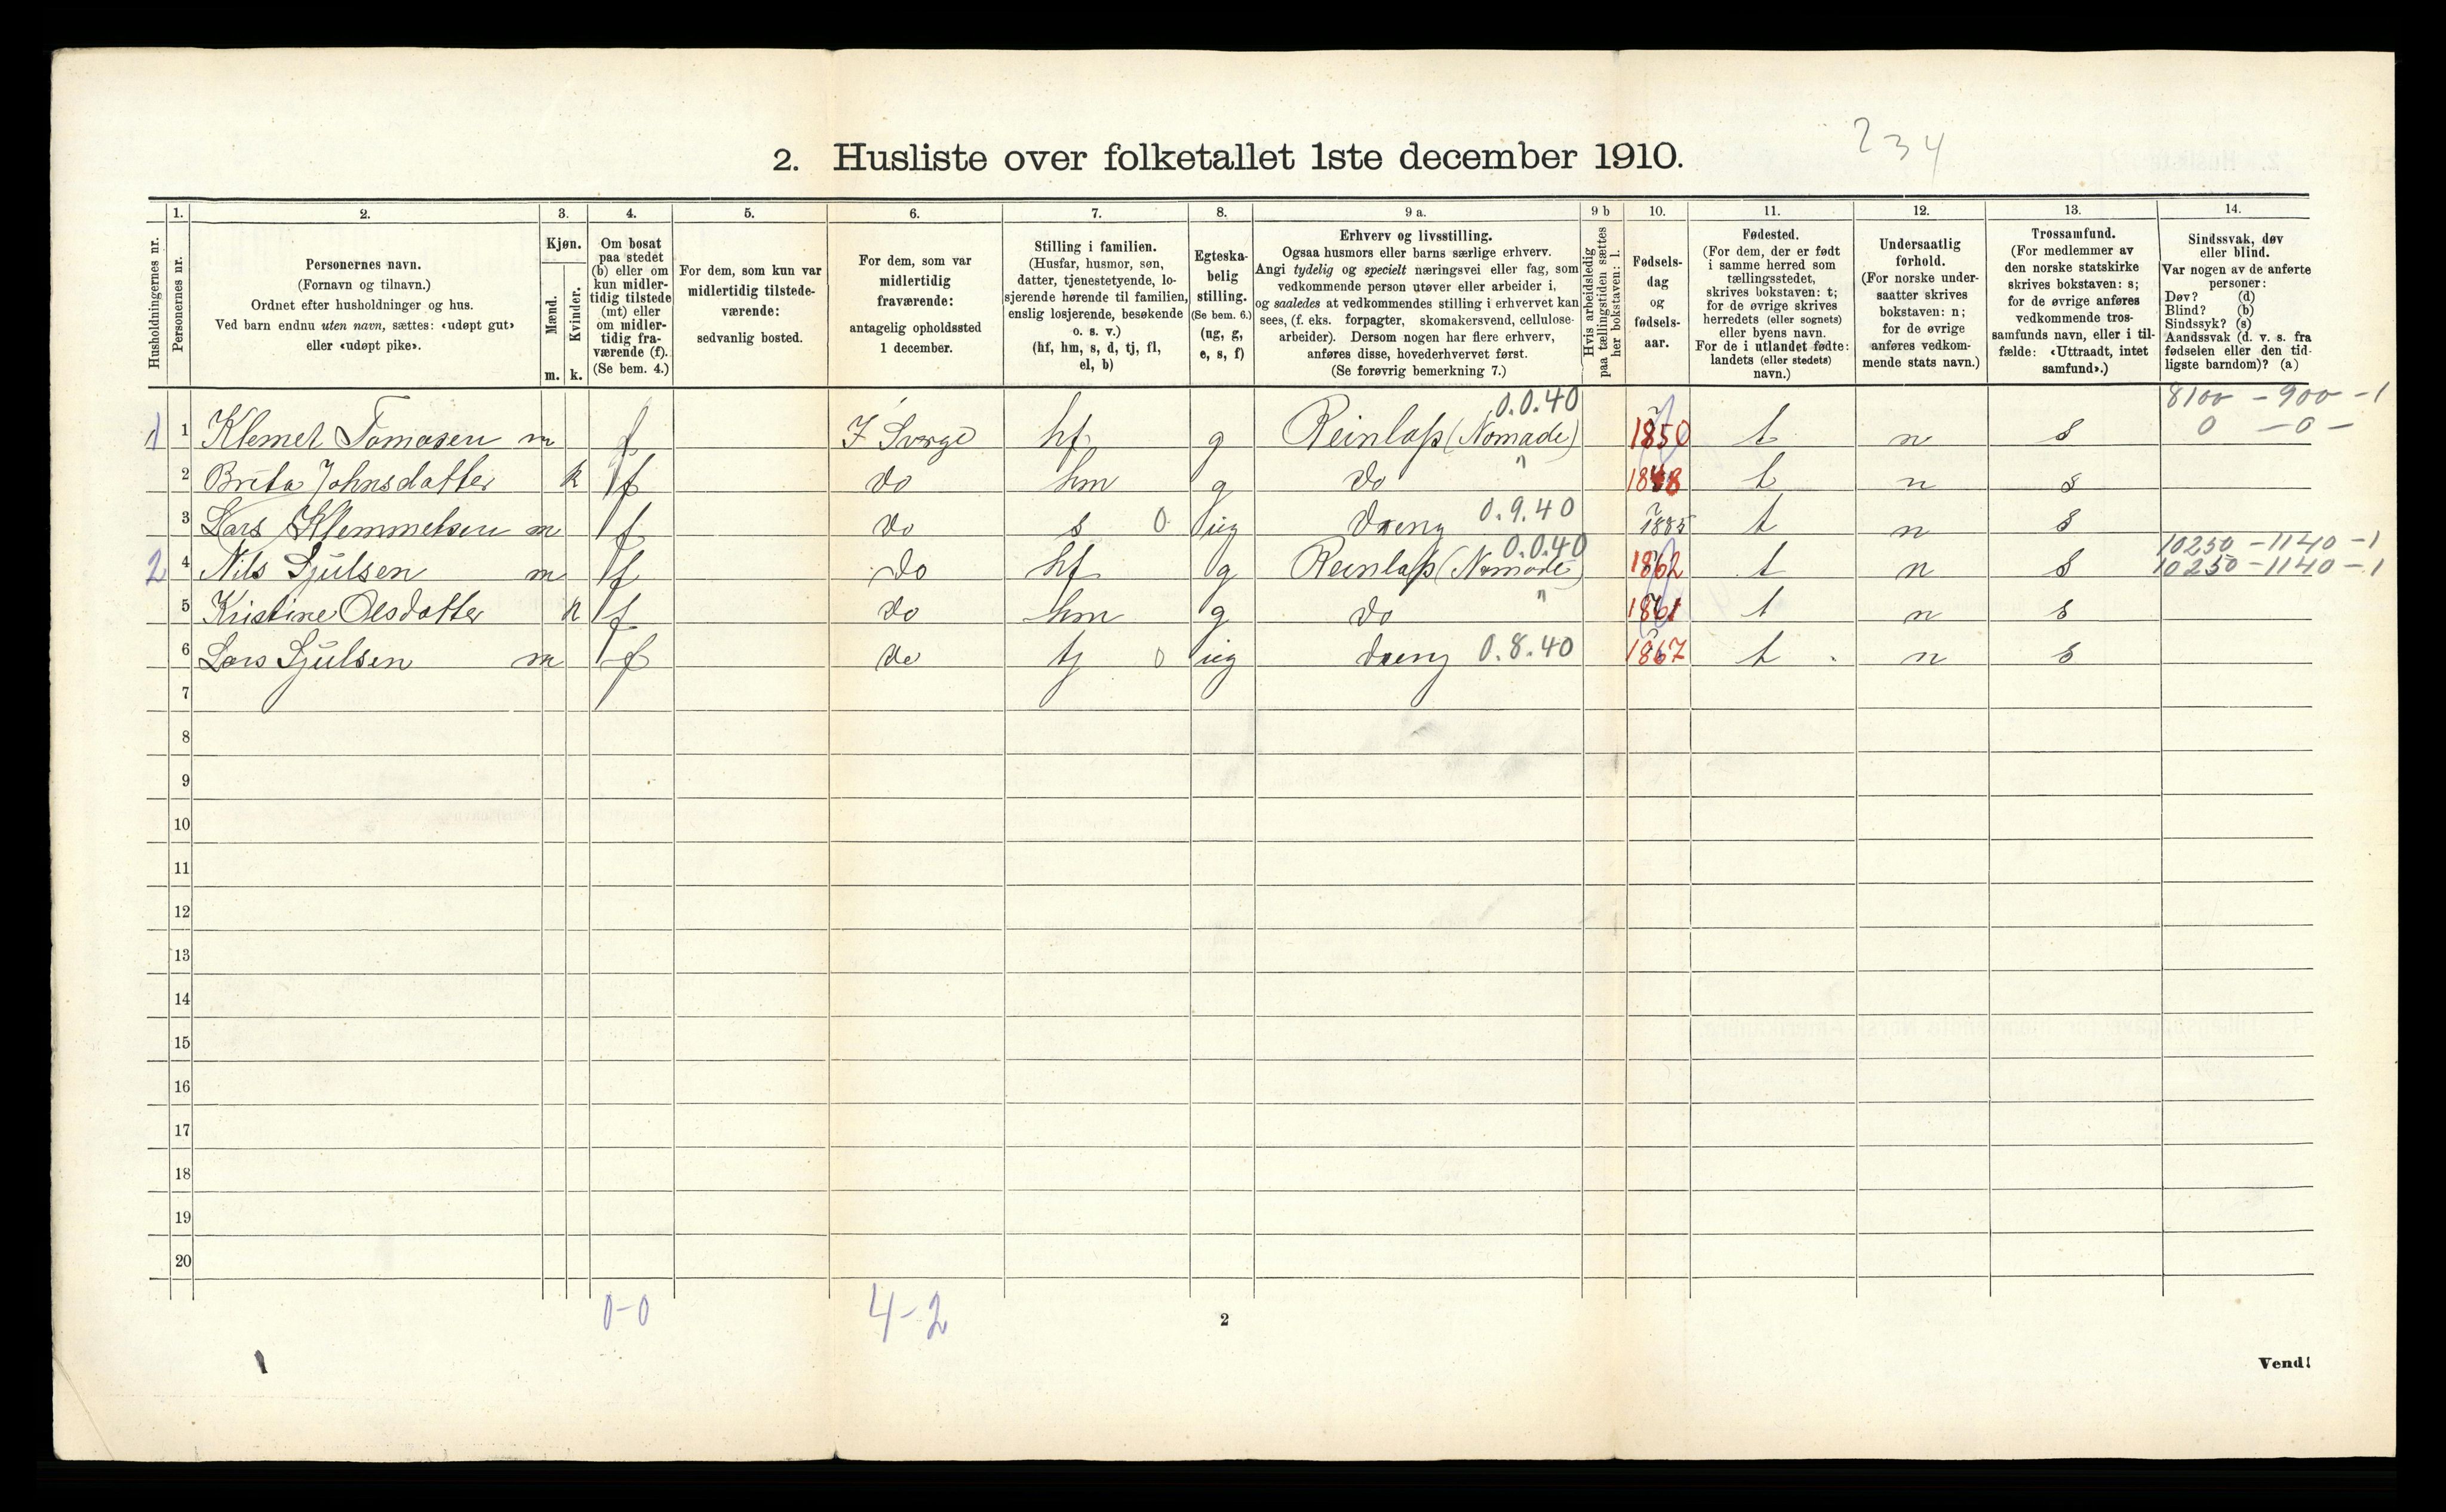 234
2. Husliste over folketallet 1ste december 1910.
Husholdningernes nr.
1. Personernes nr.
2. Personernes navn.
(Fornavn og tilnavn.)
Ordnet efter husholdninger og hus.
Ved barn endnu uten navn, sættes: «udøpt gut»
eller «udøpt pike».
3. Kjøn.
Mænd. m.
Kvinder. k.
4. Om bosat
paa stedet
(b) eller om
kun midler-
tidig tilstede
(mt) eller
om midler-
tidig fra-
værende (f).
(Se bem. 4.)
5. For dem, som kun var
midlertidig tilstede-
værende:
sedvanlig bosted.
6. For dem, som var
midlertidig
fraværende:
antagelig opholdssted
1 december.
7. Stilling i familien.
(Husfar, husmor, søn,
datter, tjenestetyende, lo-
sjerende hørende til familien,
enslig losjerende, besøkende
o. s. v.)
(hf, hm, s, d, tj, fl,
el, b)
8. Egteska-
belig
stilling.
(Se bem. 6.)
(ug, g,
e, s, f)
9 a. Erhverv og livsstilling.
Ogsaa husmors eller barns særlige erhverv.
Angi tydelig og specielt næringsvei eller fag, som
vedkommende person utøver eller arbeider i,
og saaledes at vedkommendes stilling i erhvervet kan
sees, (f. eks. forpagter, skomakersvend, cellulose-
arbeider). Dersom nogen har flere erhverv,
anføres disse, hovederhvervet først.
(Se forøvrig bemerkning 7.)
9 b Hvis arbeidsledig
paa tællingstiden sættes
her bokstaven: l.
10. Fødsels-
dag
og
fødsels-
aar.
11. Fødested.
(For dem, der er født
i samme herred som
tællingsstedet,
skrives bokstaven: t;
for de øvrige skrives
herredets (eller sognets)
eller byens navn.
For de i utlandet fødte:
landets (eller stedets)
navn.)
12. Undersaatlig
forhold.
(For norske under-
saatter skrives
bokstaven: n;
for de øvrige
anføres vedkom-
mende stats navn.)
13. Trossamfund.
(For medlemmer av
den norske statskirke
skrives bokstaven: s;
for de øvrige anføres
vedkommende tros-
samfunds navn, eller i til-
fælde: «Uttraadt, intet
samfund».)
14. Sindssvak, døv
eller blind.
Var nogen av de anførte
personer:
Døv? (d)
Blind? (b)
Sindssyk? (s)
Aandssvak (d. v. s. fra
fødselen eller den tid-
ligste barndom)? (a)
0.0.40 8100 - 900 - 1
1 1 Klemet Tomasen m f I Sverge hf g Reinlap (Nomade) 1850 t n s 0 - 0 -
2 Brita Johnsdatter k f do hm g do " 1848 t n s
3 Lars Klemmetsen m f do s 0 ug dreng 0.9.40 1885 t n s
0.0.40 10250 - 1140 - 1
2 4 Nils Sjulsen m f do hf g Reinlap (Nomade) 1862 t n s 10250 - 1140 - 1
5 Kristine Olsdatter k f do hm g do " 1861 t n s
6 Lars Sjulsen m f do tj 0 ug dreng 0.8.40 1867 t n s
7
8
9
10
11
12
13
14
15
16
17
18
19
20
0-0 4-2
2
Vend!